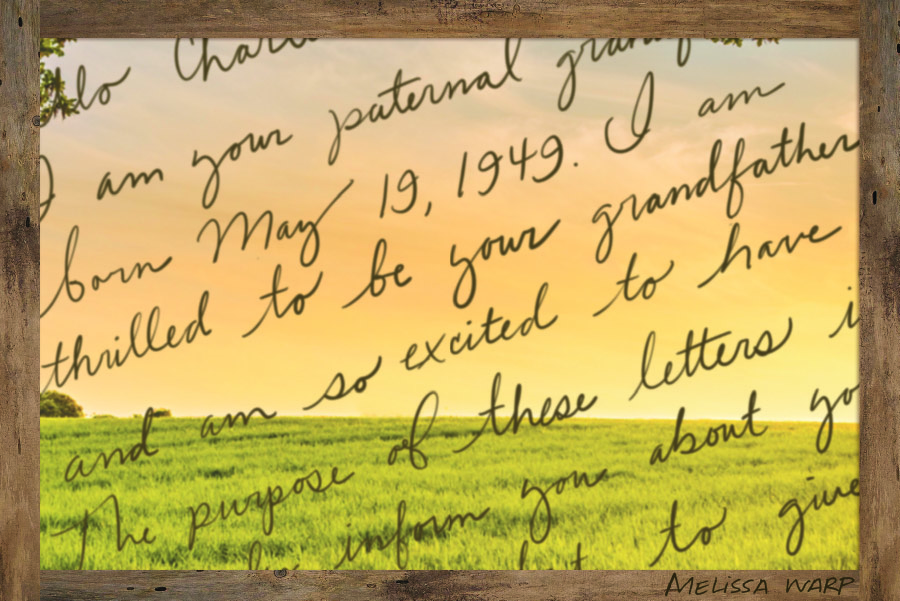 I am your paternal
born May 19, 1949. I am
thrilled to be your grandfather
and am so excited to have
The purpose of these letters
inform you about
to give
MELISSA WARP